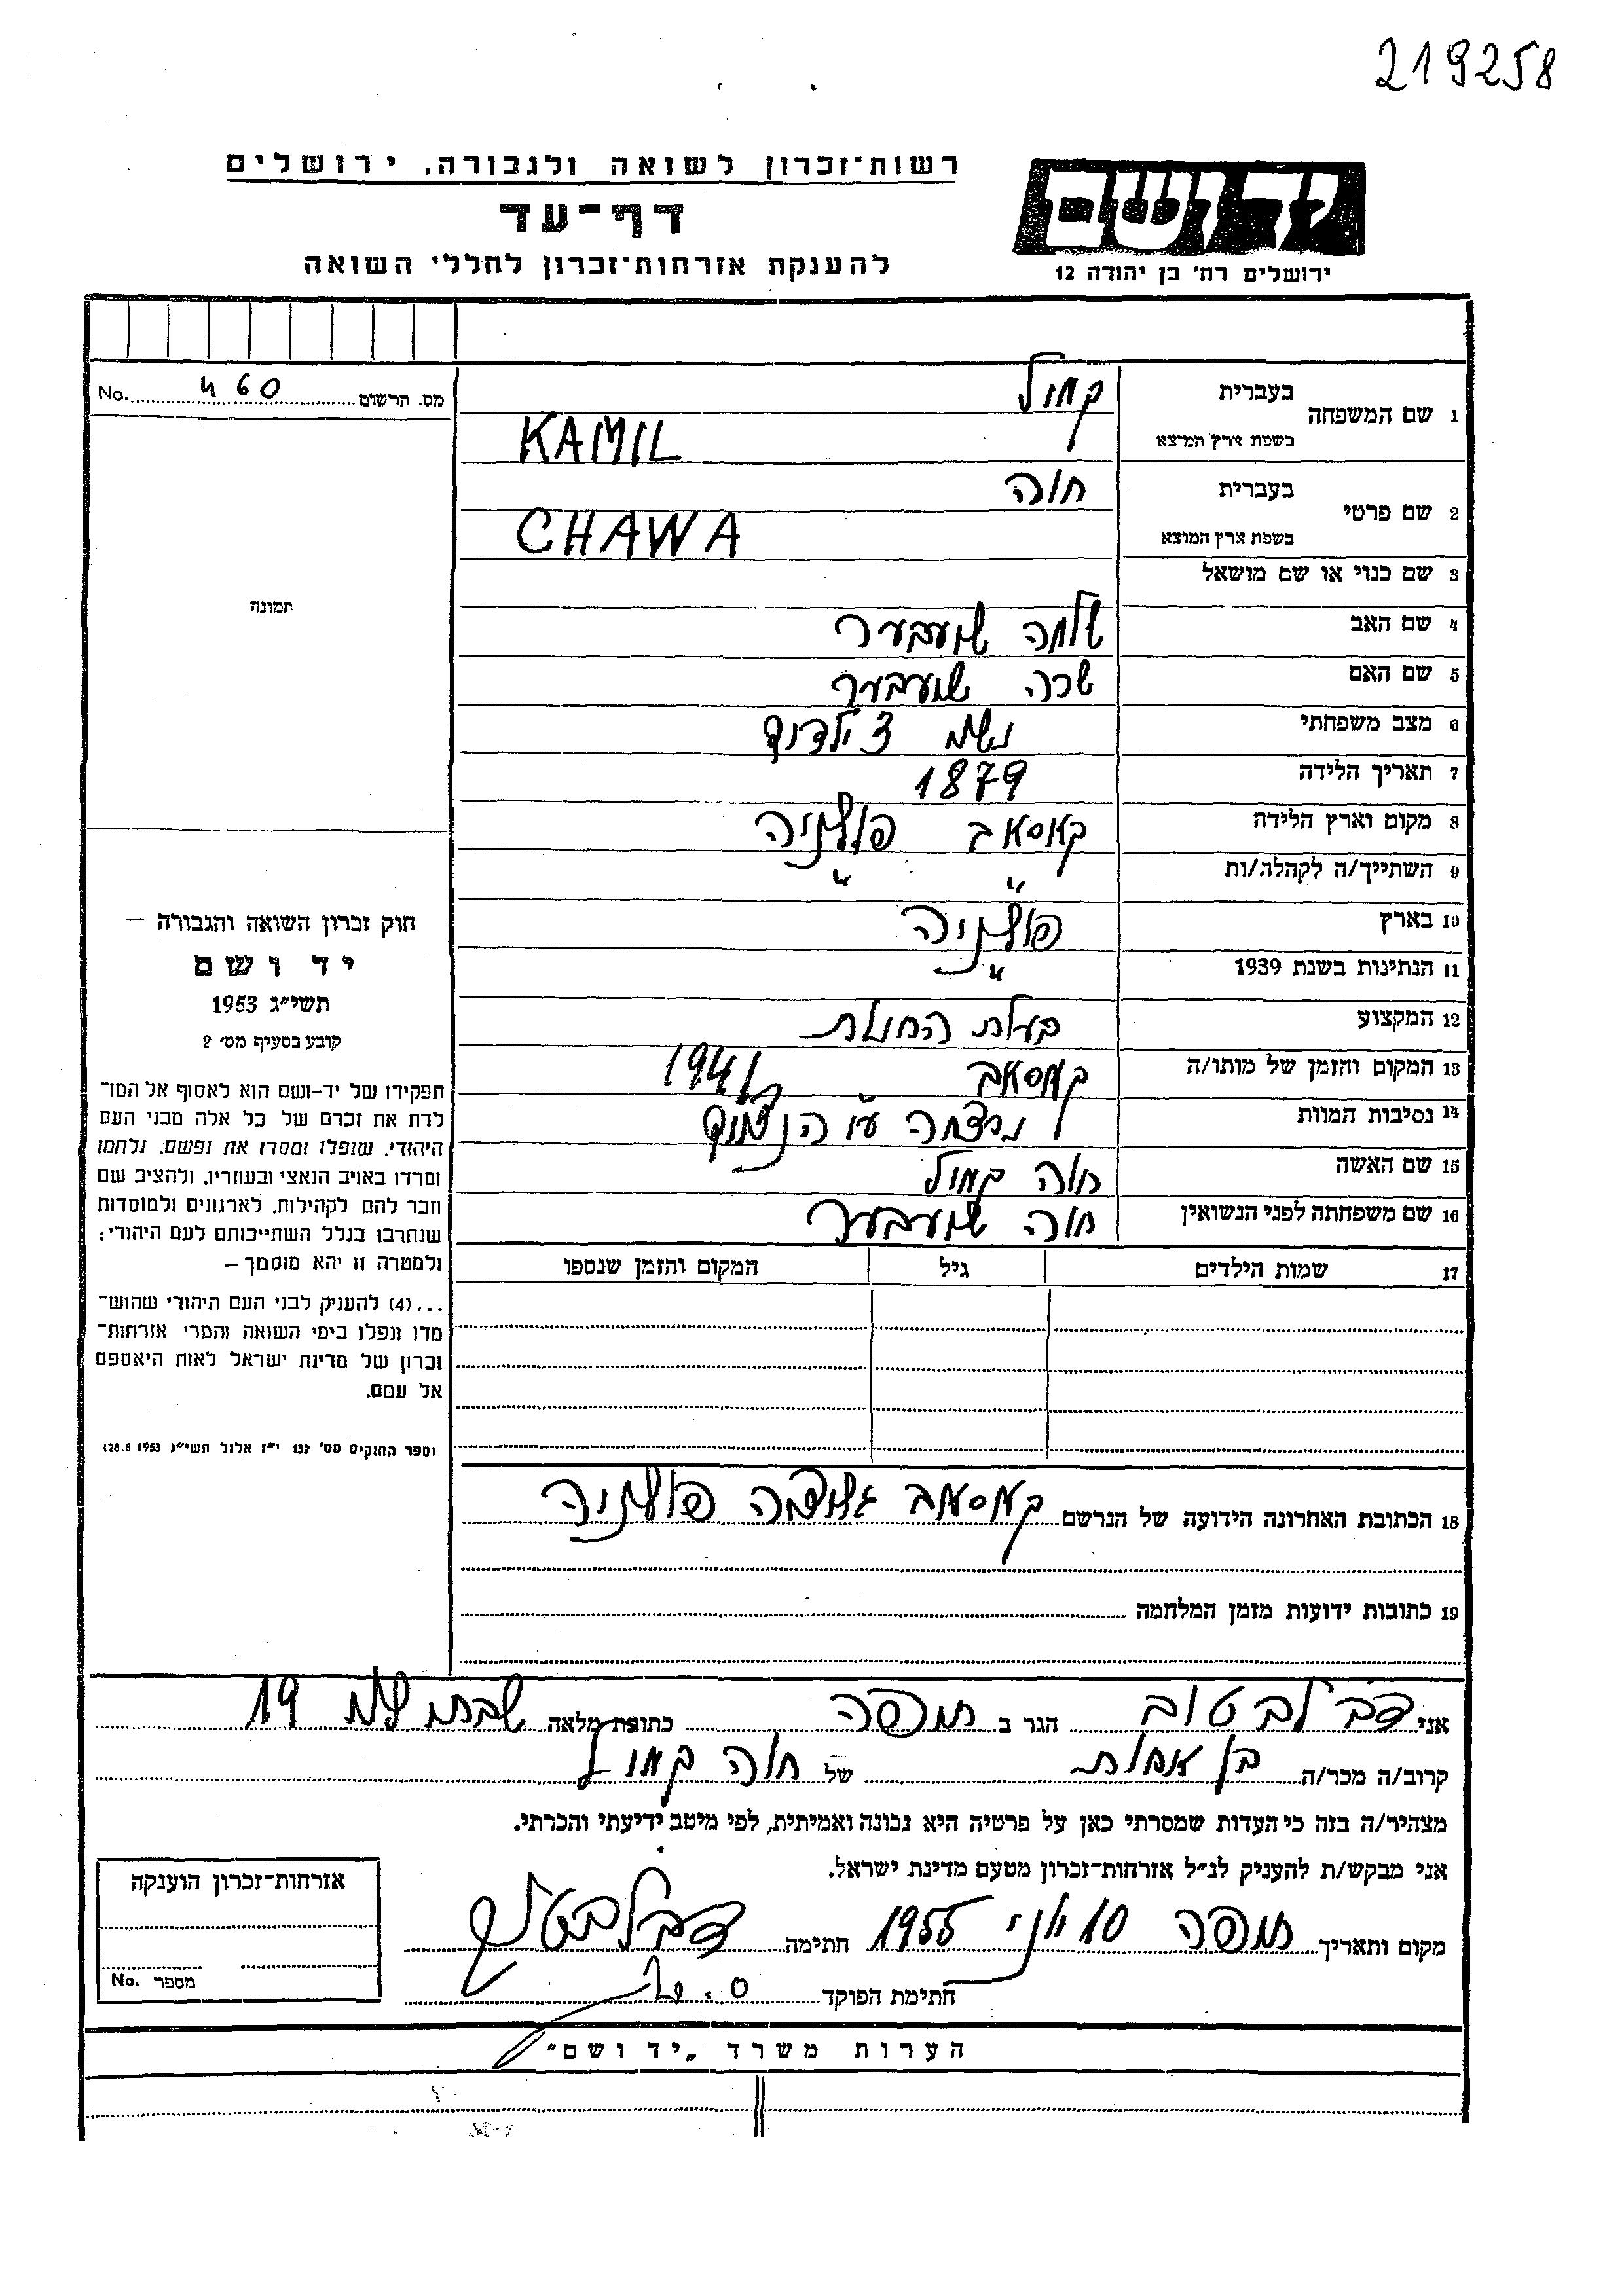 219258
רשות־זכרון לשואה ולגבורה, ירושלים
יד ושם
דף־עד
להענקת אזרחות־זכרון לחללי השואה
ירושלים רח' בן יהודה 12
מס. הרשום 460 No.
1 שם המשפחה בעברית קמיל
בשפת ארץ המוצא KAMIL
2 שם פרטי בעברית חוה
בשפת ארץ המוצא CHAWA
3 שם כנוי או שם מושאל
תמונה
4 שם האב שלמה
5 שם האם שרה
6 מצב משפחתי
7 תאריך הלידה 1879
8 מקום וארץ הלידה פולניה
9 השתייך/ה לקהלה/ות " "
10 בארץ פולניה
11 הנתינות בשנת 1939 "
12 המקצוע בעלת החנות
13 המקום והזמן של מותו/ה 1941
14 נסיבות המוות נרצחה ע"י הנאצים
15 שם האשה חוה קמיל
16 שם משפחתה לפני הנשואין חוה
17 שמות הילדים גיל המקום והזמן שנספו
חוק זכרון השואה והגבורה –
יד ושם
תשי"ג 1953
קובע בסעיף מס' 2
תפקידו של יד-ושם הוא לאסוף אל המו־
לדת את זכרם של כל אלה מבני העם
היהודי, שנפלו ומסרו את נפשם, נלחמו
ומרדו באויב הנאצי ובעוזריו, ולהציב שם
וזכר להם לקהילות, לארגונים ולמוסדות
שנחרבו בגלל השתייכותם לעם היהודי:
ולמטרה זו יהא מוסמך –
...(4) להעניק לבני העם היהודי שהוש־
מדו ונפלו בימי השואה והמרי אזרחות־
זכרון של מדינת ישראל לאות היאספם
אל עמם.
וספר החוקים מס' 132 י"ז אלול תשי"ג 28.8 1953
18 הכתובת האחרונה הידועה של הנרשם פולניה
19 כתובות ידועות מזמן המלחמה
אני דב לבטוב הגר ב חיפה כתובת מלאה 19
קרוב/ה מכר/ה בן אחות של חוה קמיל
מצהיר/ה בזה כי העדות שמסרתי כאן על פרטיה היא נכונה ואמיתית, לפי מיטב ידיעתי והכרתי.
אני מבקש/ת להעניק לנ"ל אזרחות־זכרון מטעם מדינת ישראל.
מקום ותאריך חיפה 10 יוני 1955 חתימה
חתימת הפוקד
אזרחות־זכרון הוענקה
מספר No.
הערות משרד „יד ושם"